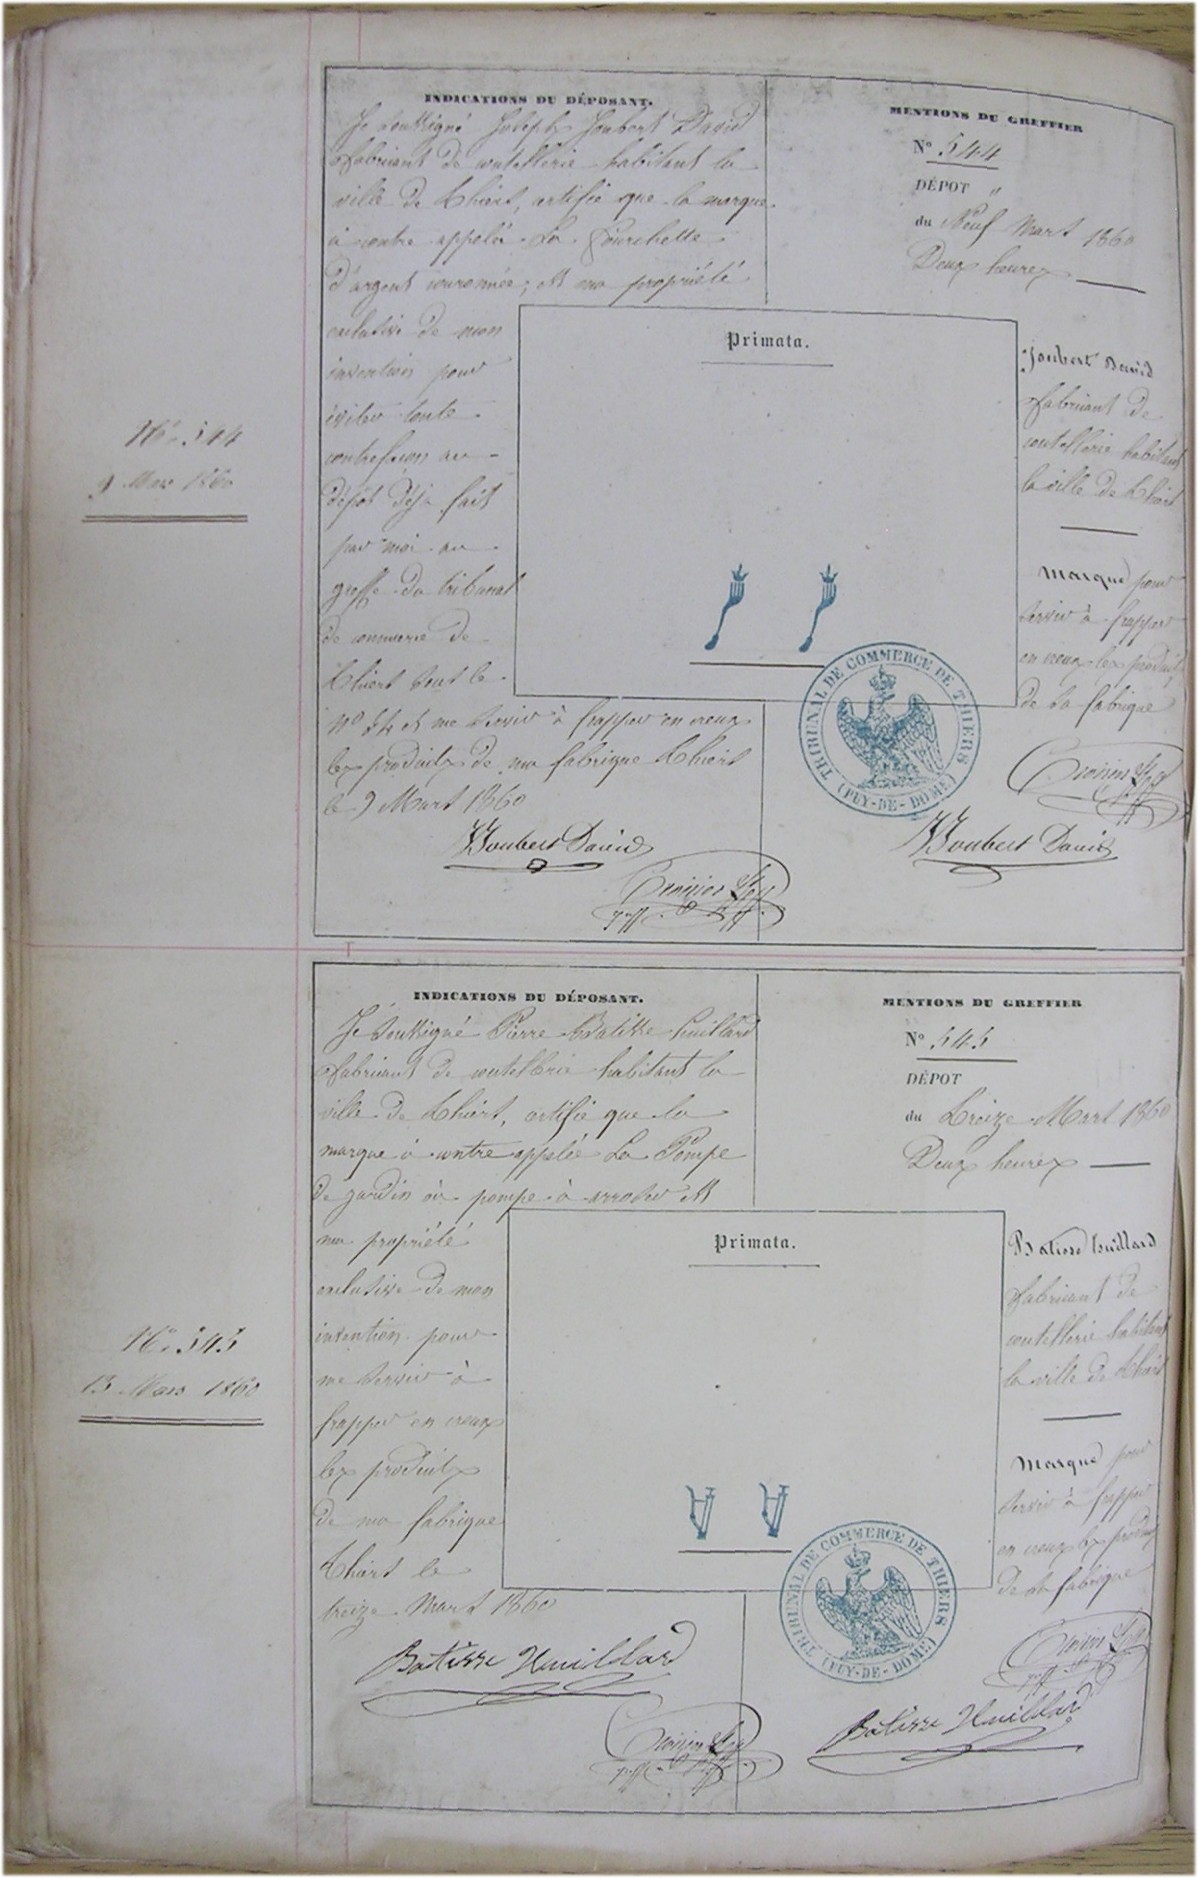 INDICATIONS DU DÉPOSANT.
Je soussigné Joseph Joubert David
fabricant de coutellerie habitant la
ville de Thiers, certifie que la marque
ci contre appelée La Fourchette
d'argent couronnée, est ma propriété
exclusive de mon
invention pour
éviter toute
contrefaçon au
dépôt déjà fait
par moi au
greffe du tribunal
de commerce de
Thiers sous le
N° 54 et me servir à frapper en creux
les produits de ma fabrique Thiers
le 9 Mars 1860
Joubert David
MENTIONS DU GREFFIER
N° 544
DÉPOT "
du Neuf Mars 1860
Deux heures
Primata.
Joubert David
fabricant de
coutellerie habitant
la ville de Thiers
Marque pour
servir à frapper
en creux les produits
de sa fabrique
TRIBUNAL DE COMMERCE DE THIERS
(PUY-DE-DOME)
Joubert David
N° 544
9 Mars 1860
INDICATIONS DU DÉPOSANT.
Je soussigné Pierre Batisse Huillard
fabricant de coutellerie habitant la
ville de Thiers, certifie que la
marque ci contre appelée La Pompe
de jardin ou pompe à arroser est
ma propriété
exclusive de mon
invention pour
me servir à
frapper en creux
les produits
de ma fabrique
Thiers le
treize Mars 1860
Batisse Huillard
MENTIONS DU GREFFIER
N° 545
DÉPOT
du Treize Mars 1860
Deux heures
Primata.
Batisse Huillard
fabricant de
coutellerie habitant
la ville de Thiers
Marque pour
servir à frapper
en creux les produits
de sa fabrique
TRIBUNAL DE COMMERCE DE THIERS
(PUY-DE-DOME)
Batisse Huillard
N° 545
13 Mars 1860